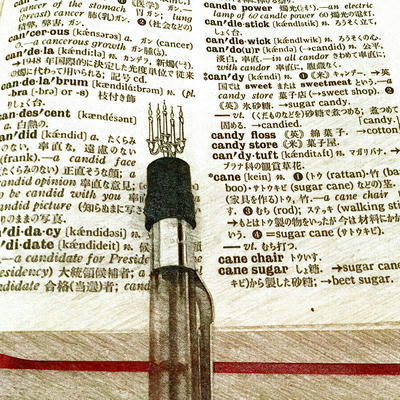 cancer of the stomach
(breast) cancer 肺(乳)ガン.
can'cer·ous [kǽnsərəs] a. ガン (cancer)
—a cancerous growth ガン腫(しゅ).
can·de'la
→1948年国際的に決定した光度単位で従来
can·de·la'brum [kændilá:brəm] n. (pl.
-bra (-brə) or -s) 枝付き飾
りしょく台.
can·des'cent [kændésənt]
a. 白熱の.
can'did [kǽndid] a. たくらみ
のない, 率直な, 遠慮のない
(frank).—a candid face
たくらみのない) 正直そうな顔; a
candid opinion 率直な意見;
be candid with you 率直
candid picture (知らぬまに写さ
りのままの写真.
can'di·da·cy [kǽndidəsi] n.
can'di·date [kǽndideit] n. 候
—a candidate for Presi
(Presidency) 大統領候補者; a
candidate 合格(当選)者; cand
candle power 燭光(しょっこう).—an electric
lamp of 60 candle power 60燭光の電灯.
can'dle·stick [kǽndlstik] n. ろうそく立て,
しょく台.
can'dle·wick [kǽndlwik] n. ろうそくの心.
can'do(u)r [kǽndə] n. (→candid) 公平,
淡白, 率直.—in all candor きわめて率直に
with candor 率直に, 腹蔵なく.
can'dy [kǽndi] n. ❶《米》キャンデー. →英
国では sweet または sweetmeat という.—a
candy store 菓子店 (→sweet shop). ❷
《英》氷砂糖. →sugar candy.
— vt. (くだものなどを) 砂糖で煮つめる; 煮つめて
固める. —candied.
candy floss《英》綿菓子.
candy store《米》菓子屋.
can'dy·tuft [kǽnditʌft] n. マガリバナ.
ブラナ科の観賞草花.
cane [kein] n. ❶ トウ (rattan); 竹 (bam
boo)・サトウキビ (sugar cane) などの茎.
(家具を作る) トウ, 竹.—a cane chair
す. ❸ むち (rod); ステッキ (walking sti
→もとはトウ製の物をいったが今は材料にかか
いう. ❹ =sugar cane (サトウキビ).
— vt. むち打つ.
cane chair トウいす.
cane sugar しょ糖. →sugar cane
キビ) から製した砂糖; →beet sugar.